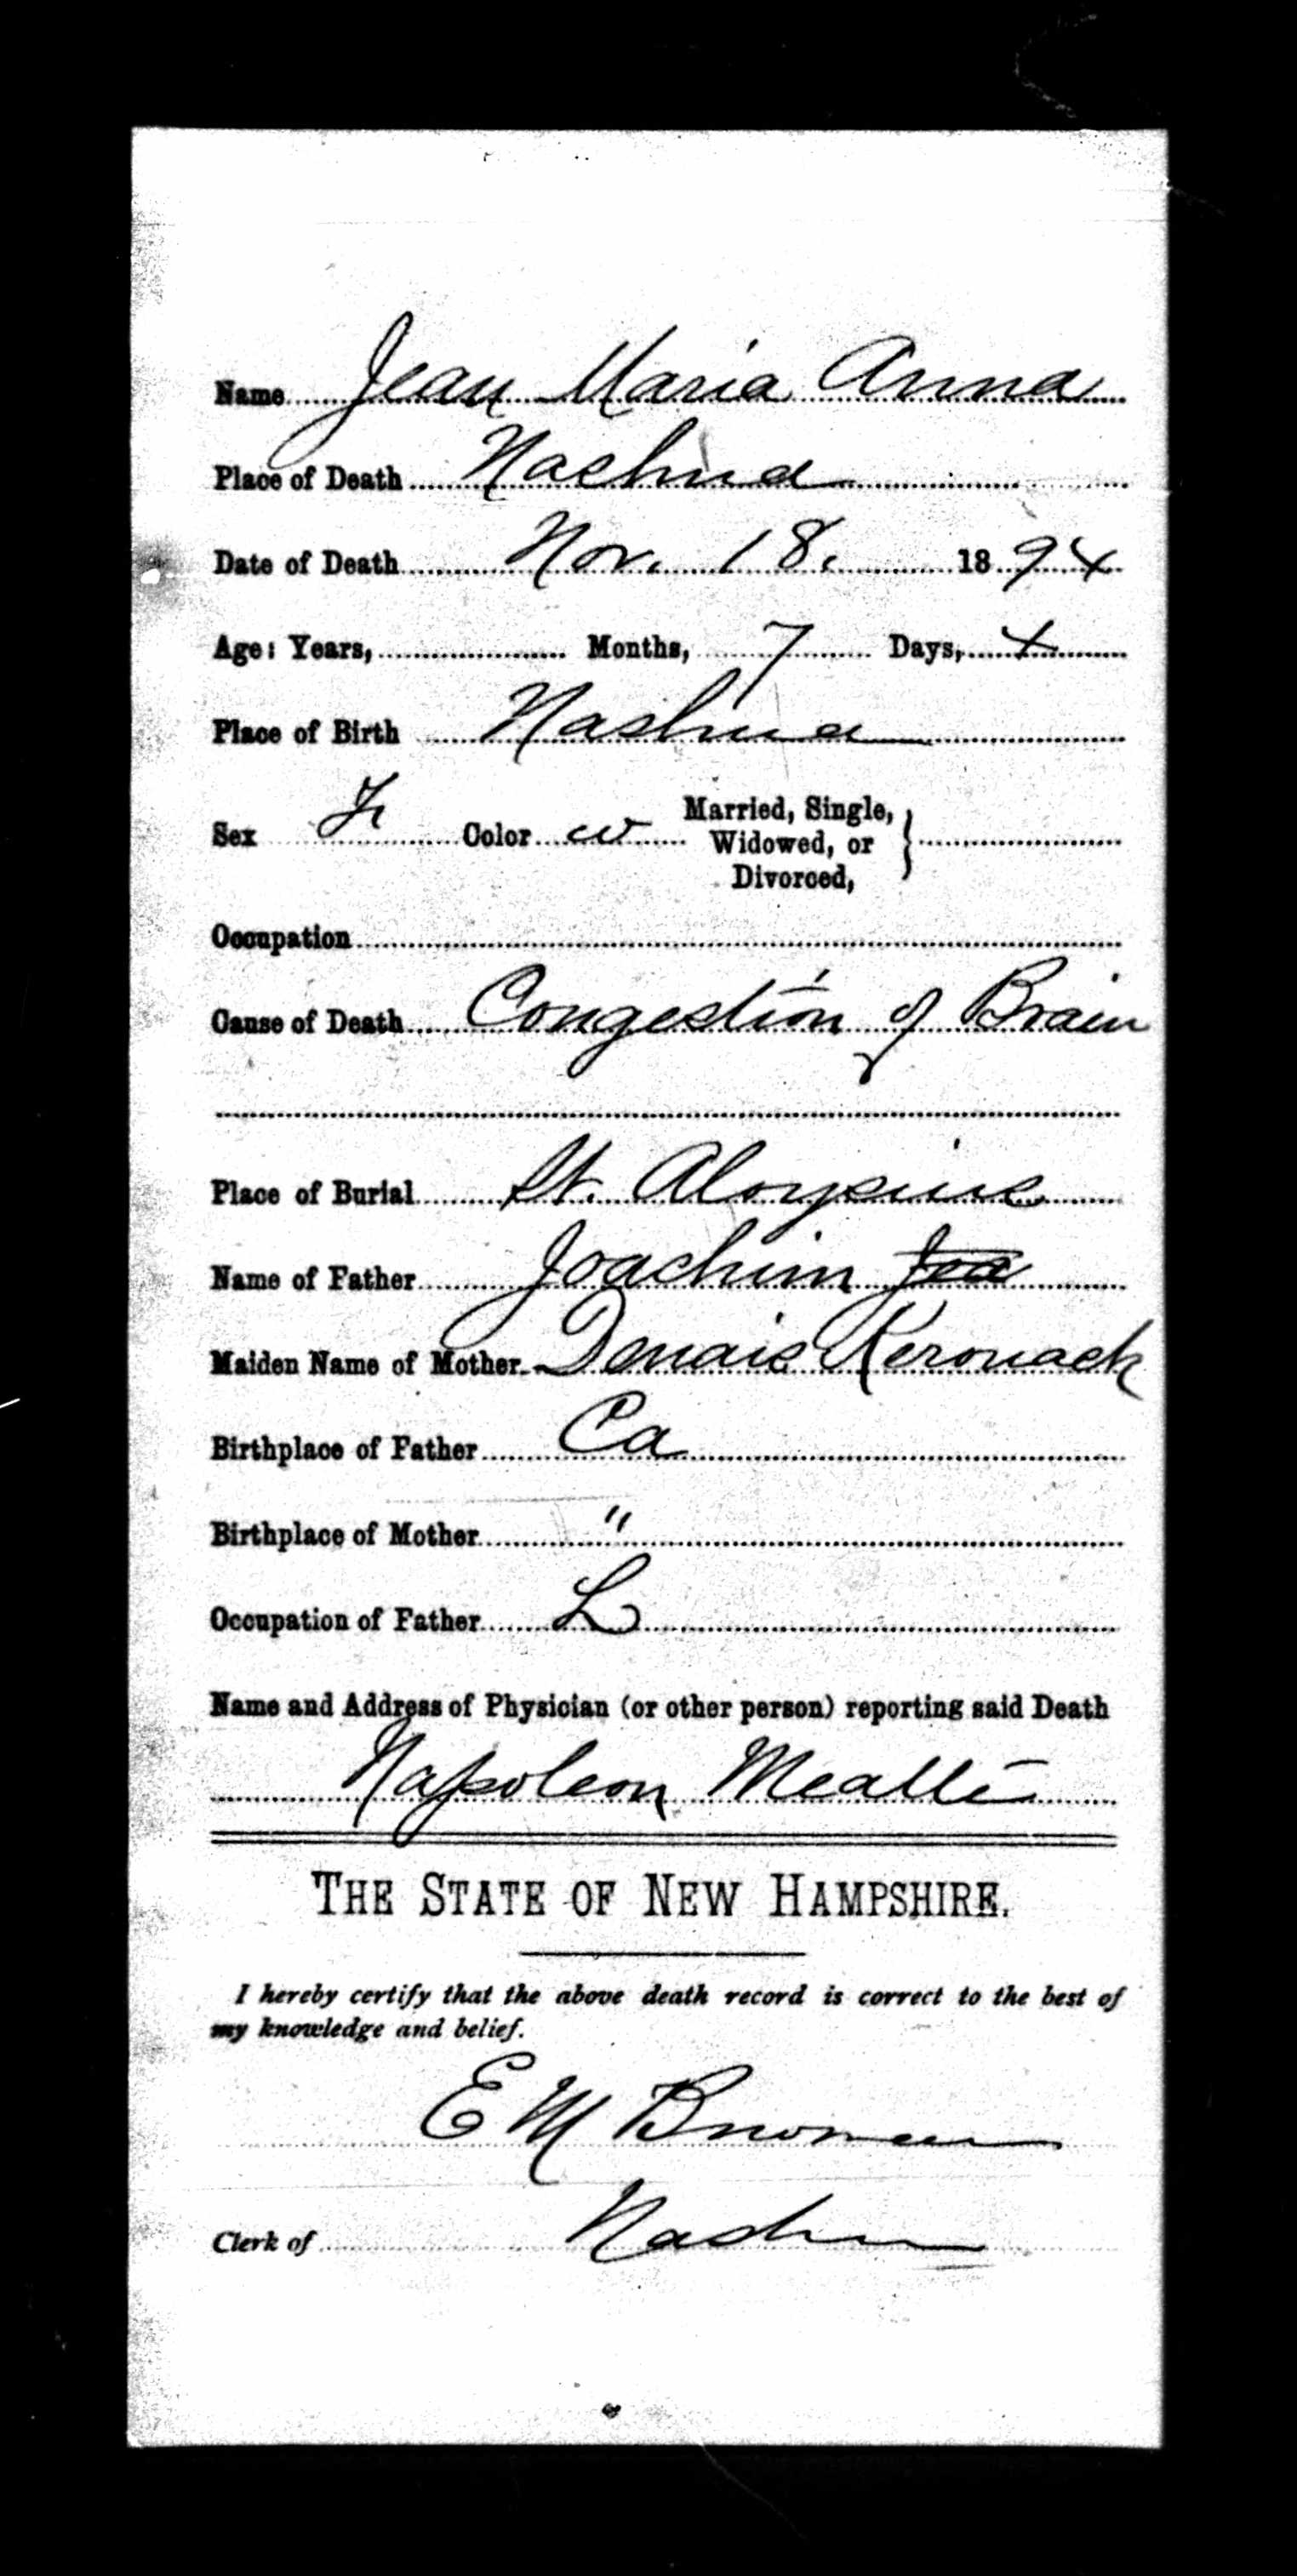 Name Jean Maria Anna
Place of Death Nashua
Date of Death Nov. 18. 1894
Age: Years, Months, 7 Days, 4
Place of Birth Nashua
Sex F Color w Married, Single,
Widowed, or
Divorced,
Occupation
Cause of Death Congestion of Brain
Place of Burial St. Aloysius
Name of Father Joachim
Maiden Name of Mother Kerouack
Birthplace of Father Ca
Birthplace of Mother "
Occupation of Father L
Name and Address of Physician (or other person) reporting said Death
Napoleon
THE STATE OF NEW HAMPSHIRE.
I hereby certify that the above death record is correct to the best of
my knowledge and belief.
E M
Clerk of Nashua